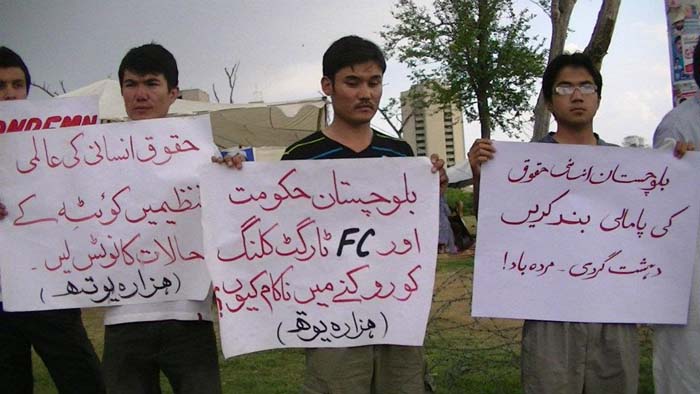 CONDEMN
حقوق انسانی کی عالمی
تنظیمیں کوئٹہ کے
حالات کا نوٹس لیں۔
(ہزارہ یوتھ)
بلوچستان حکومت
اور FC ٹارگٹ کلنگ
کو روکنے میں ناکام کیوں؟
(ہزارہ یوتھ)
بلوچستان انسانی حقوق
کی پامالی بند کریں
دہشت گردی۔ مردہ باد!